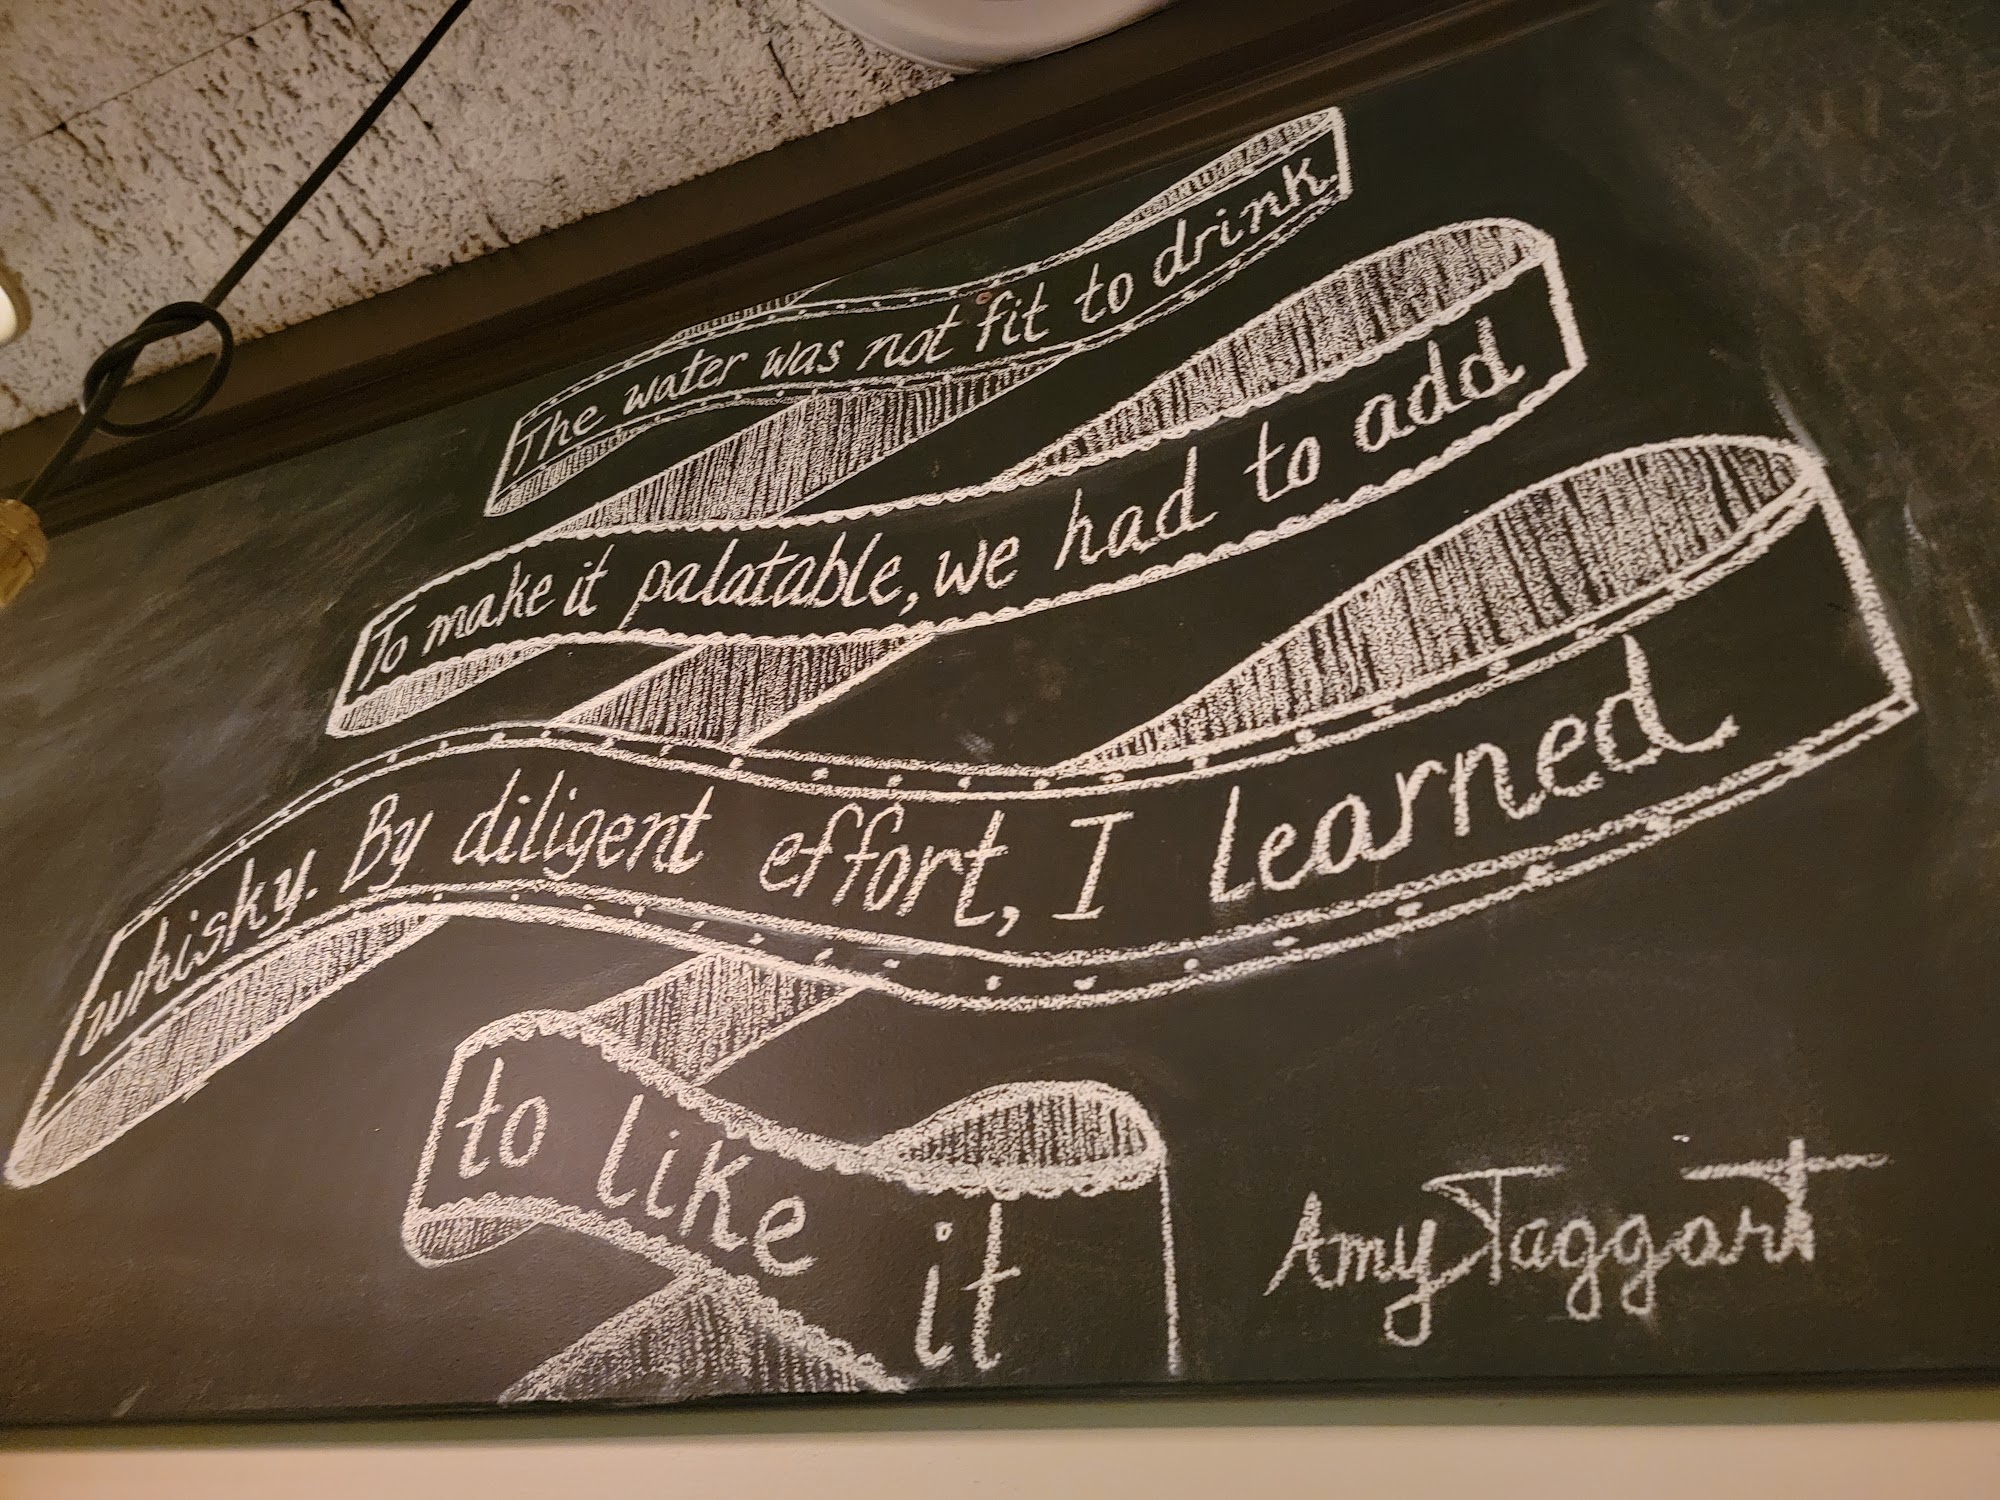 The water was not fit to drink.
To make it palatable, we had to add
whisky. By diligent effort, I learned
to like it
Amy Taggart